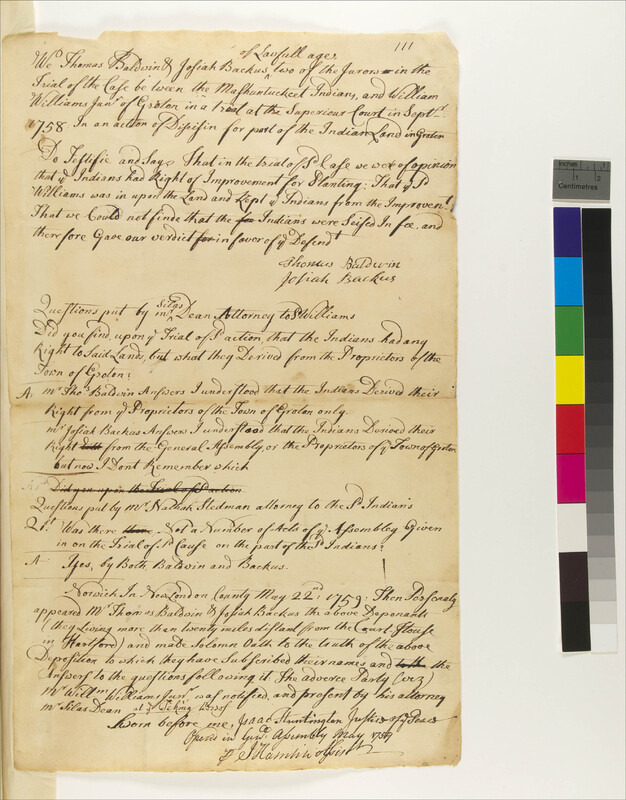 111
of Lawfull age,
We Thomas Baldwin & Josiah Backus, two of the Jurors in the
Trial of the Case between the Mashuntuckeet Indians, and William
Williams Junr. of Groton in a trial at the Superiour Court in Septr.
1758 In an action of Disseisin for part of the Indian Land in Groton
Do Testifie and Say, That in the trial of sd. Case we were of opinion
that ye Indians had Right of Improvement for Planting: That ye sd.
Williams was in upon the Land and Kept ye Indians from the Improvent.
That we Could not finde that the fee Indians were Seised In fee, and
therefore Gave our verdict for in favor of ye Defendt
Thomas Baldwin
Josiah Backus
Questions put by mr. Silas Dean Attorney to sd. Williams
Did you find, upon ye Trial of sd. action, that the Indians had any
Right to Said Lands, but what they Derived from the Proprietors of the
Town of Groton?
A: mr. Thos. Baldwin Answers I understood that the Indians Derived their
Right from ye Proprietors of the Town of Groton only.
mr. Josiah Backus Answers I understood that the Indians Derived their
Right from the General Assembly, or the Proprietors of ye Town of Groton
but now I Dont Remember which
Did you upon the Trial of sd. action
Questions put by mr. Nathan Stedman attorney to the sd. Indians
Q 1st. Was there Not a Number of Acts of ye Assembly Given
in on the Trial of sd. Cause on the part of the sd. Indians?
A Yes, by Both Baldwin and Backus.
Norwich In New London County May 22nd: 1759: Then Personaly
appeared Mr. Thomas Baldwin & Josiah Backus the above Deponants
(they Living more than twenty miles distant from the Court House
in Hartford) and made Solemn Oath to the truth of the above
Deposition to which they have Subscribed their names and the
Answers to the questions following it. The adverce Party (viz)
Mr. Willm. Williams Junr. was notified, and present by his attorney
mr. Silas Dean at ye Taking hereof
Sworn before me, Isaac Huntington Justice of ye Peace
Opened in Genll. Assembly May 1759
Inches
1
2
Centimetres